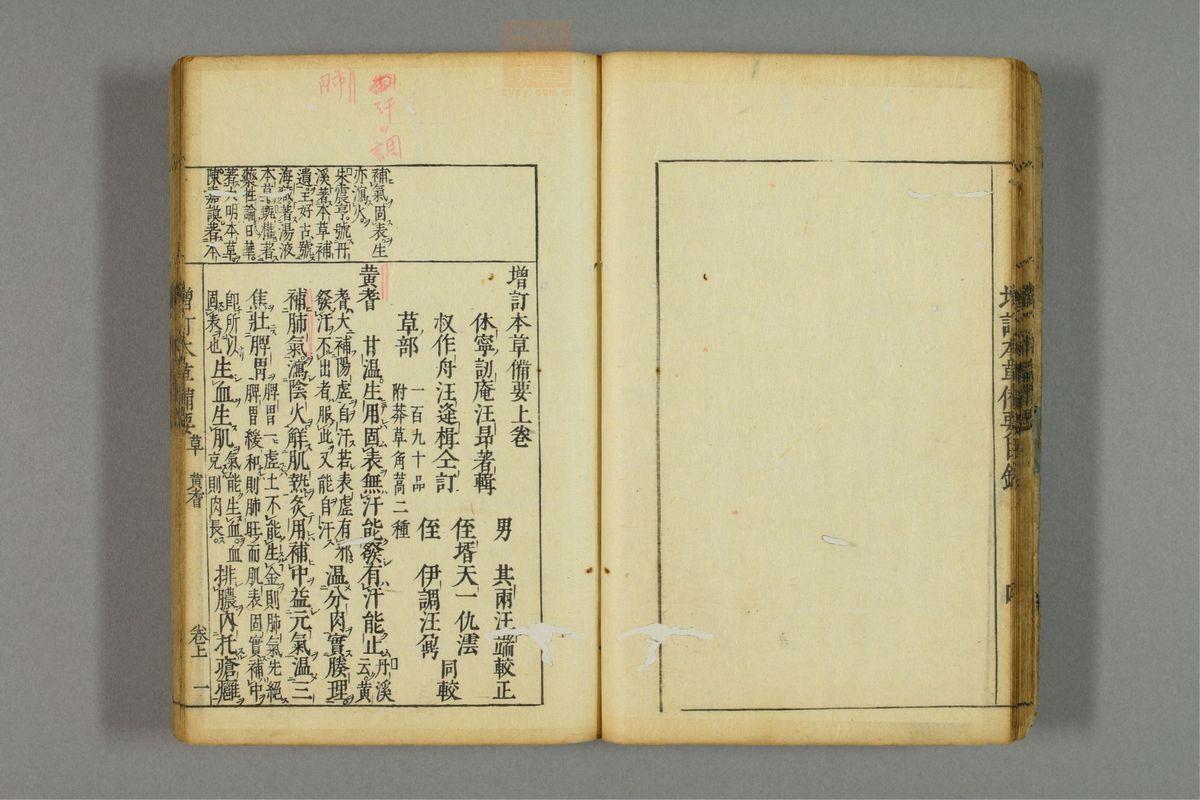 増訂本草備要上卷
休寧訒庵汪昂著輯
叔作舟汪逢楫仝訂
男 其兩汪端較正
侄壻天一仇澐
侄 伊調汪
同較
草部 一百九十品
附莽草角蒿二種
黃耆 甘温生用固表無汗能發有汗能止 丹溪云黃
耆大補陽虛自汗若表虛有邪
發汗不出者服此又能自汗 温分肉實腠理
補肺氣瀉陰火解肌熱炙用補中益元氣温三
焦壯脾胃 脾胃一虛土不能生金則肺氣先絕
脾胃緩和則肺旺而肌表固實補中
即所以
固表也 生血生肌 氣能生血血
充則肉長 排膿內托瘡癰
補氣固表生
亦瀉火
朱震亨號丹
溪著本草補
遺王好古號
海藏著湯液
本草甄權著
藥性論日華
著大明本草
陳嘉謨著本
草 黃耆
卷上 一
肺
汗
調